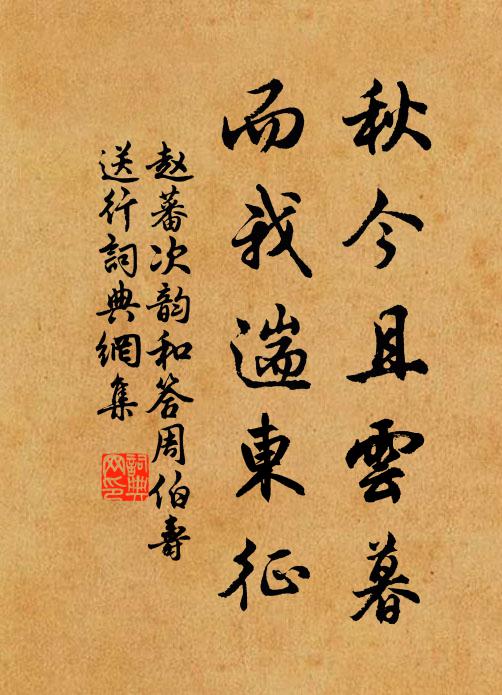 秋今且雲暮
而我遄東征
赵蕃次韵和答周伯壽
送行詞典網集
詞典
网印